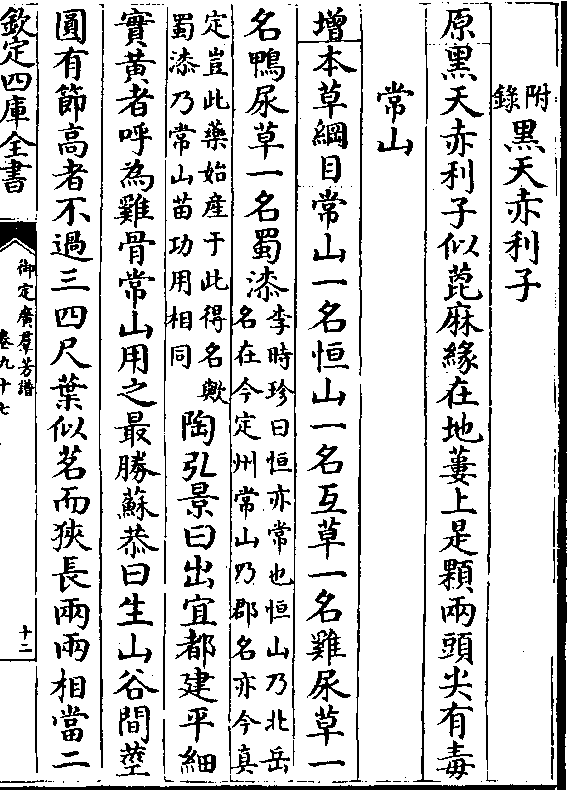 附錄黑天赤利子
原黑天赤利子似蓖麻緣在地蔞上是顆兩頭尖有毒
常山
增本草綱目常山一名恒山一名互草一名雞尿草一
名鴨尿草一名蜀漆李時珍曰恒亦常也恒山乃北岳
名在今定州常山乃郡名亦今真
定豈此藥始產于此得名歟
蜀漆乃常山苗功用相同陶弘景曰出宜都建平細
實黃者呼為雞骨常山用之最勝蘇恭曰生山谷間莖
圓有節高者不過三四尺葉似茗而狹長兩兩相當二
欽定四庫全書
御定廣羣芳譜
卷九十七
十二